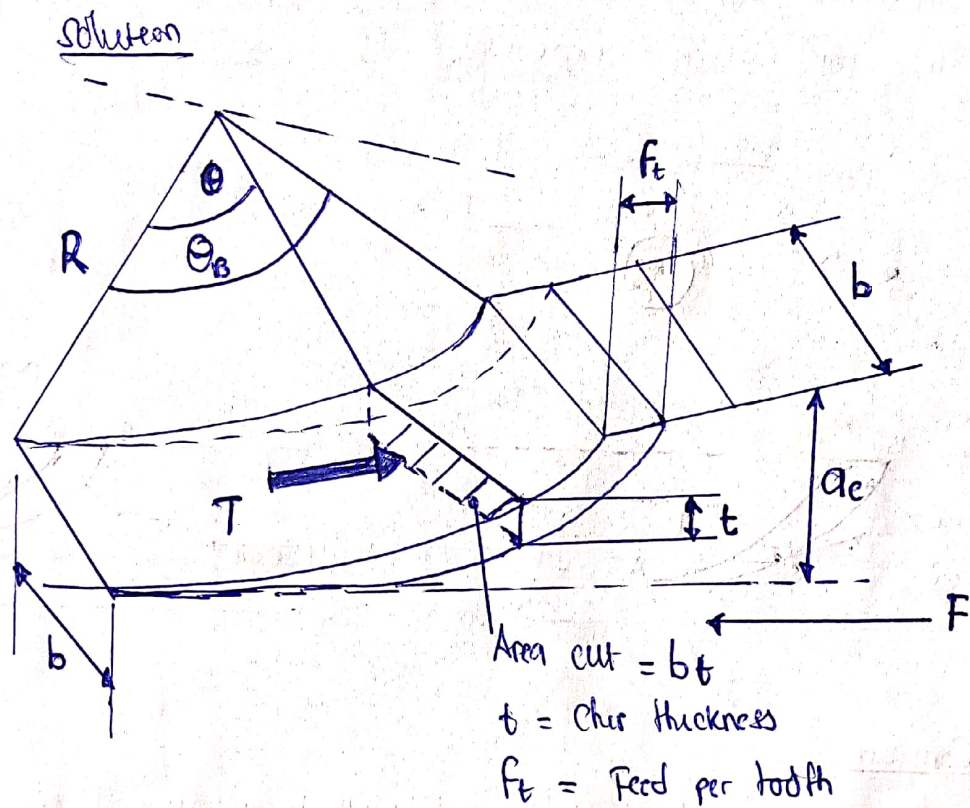 Solution
θ
R
θB
ft
b
T
ac
t
F
b
Area cut = bt
t = Chip thickness
ft = Feed per tooth